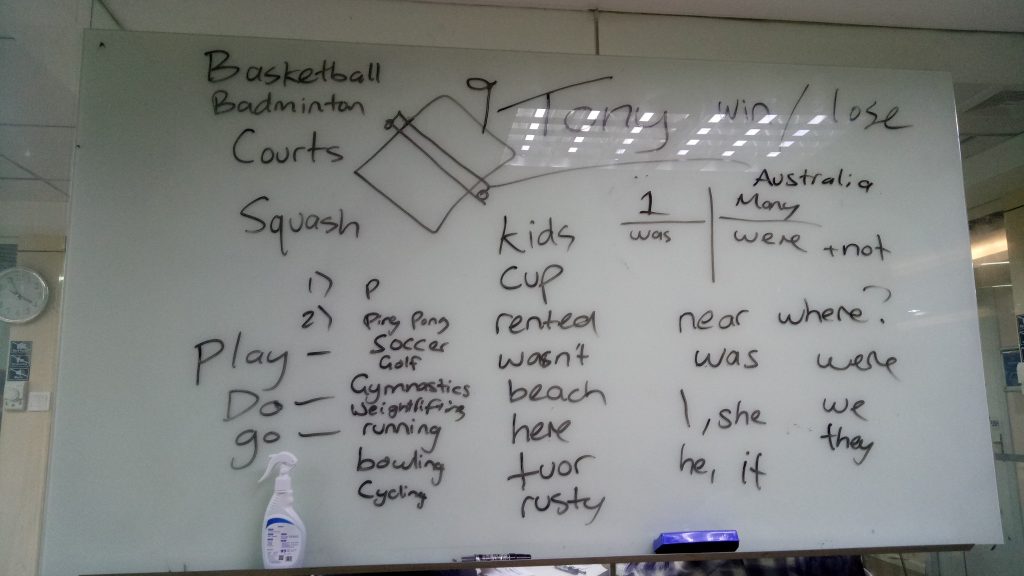 Basketball
Badminton
Courts
Squash
Tony win / lose
Australia
1 Many
was were + not
kids
cup
1) P
2) Ping Pong
Soccer
Play - Golf
Do - Gymnastics
Weightlifting
go - running
bowling
Cycling
rented
wasn't
beach
here
tuor
rusty
near where?
was were
I, she we
they
he, it